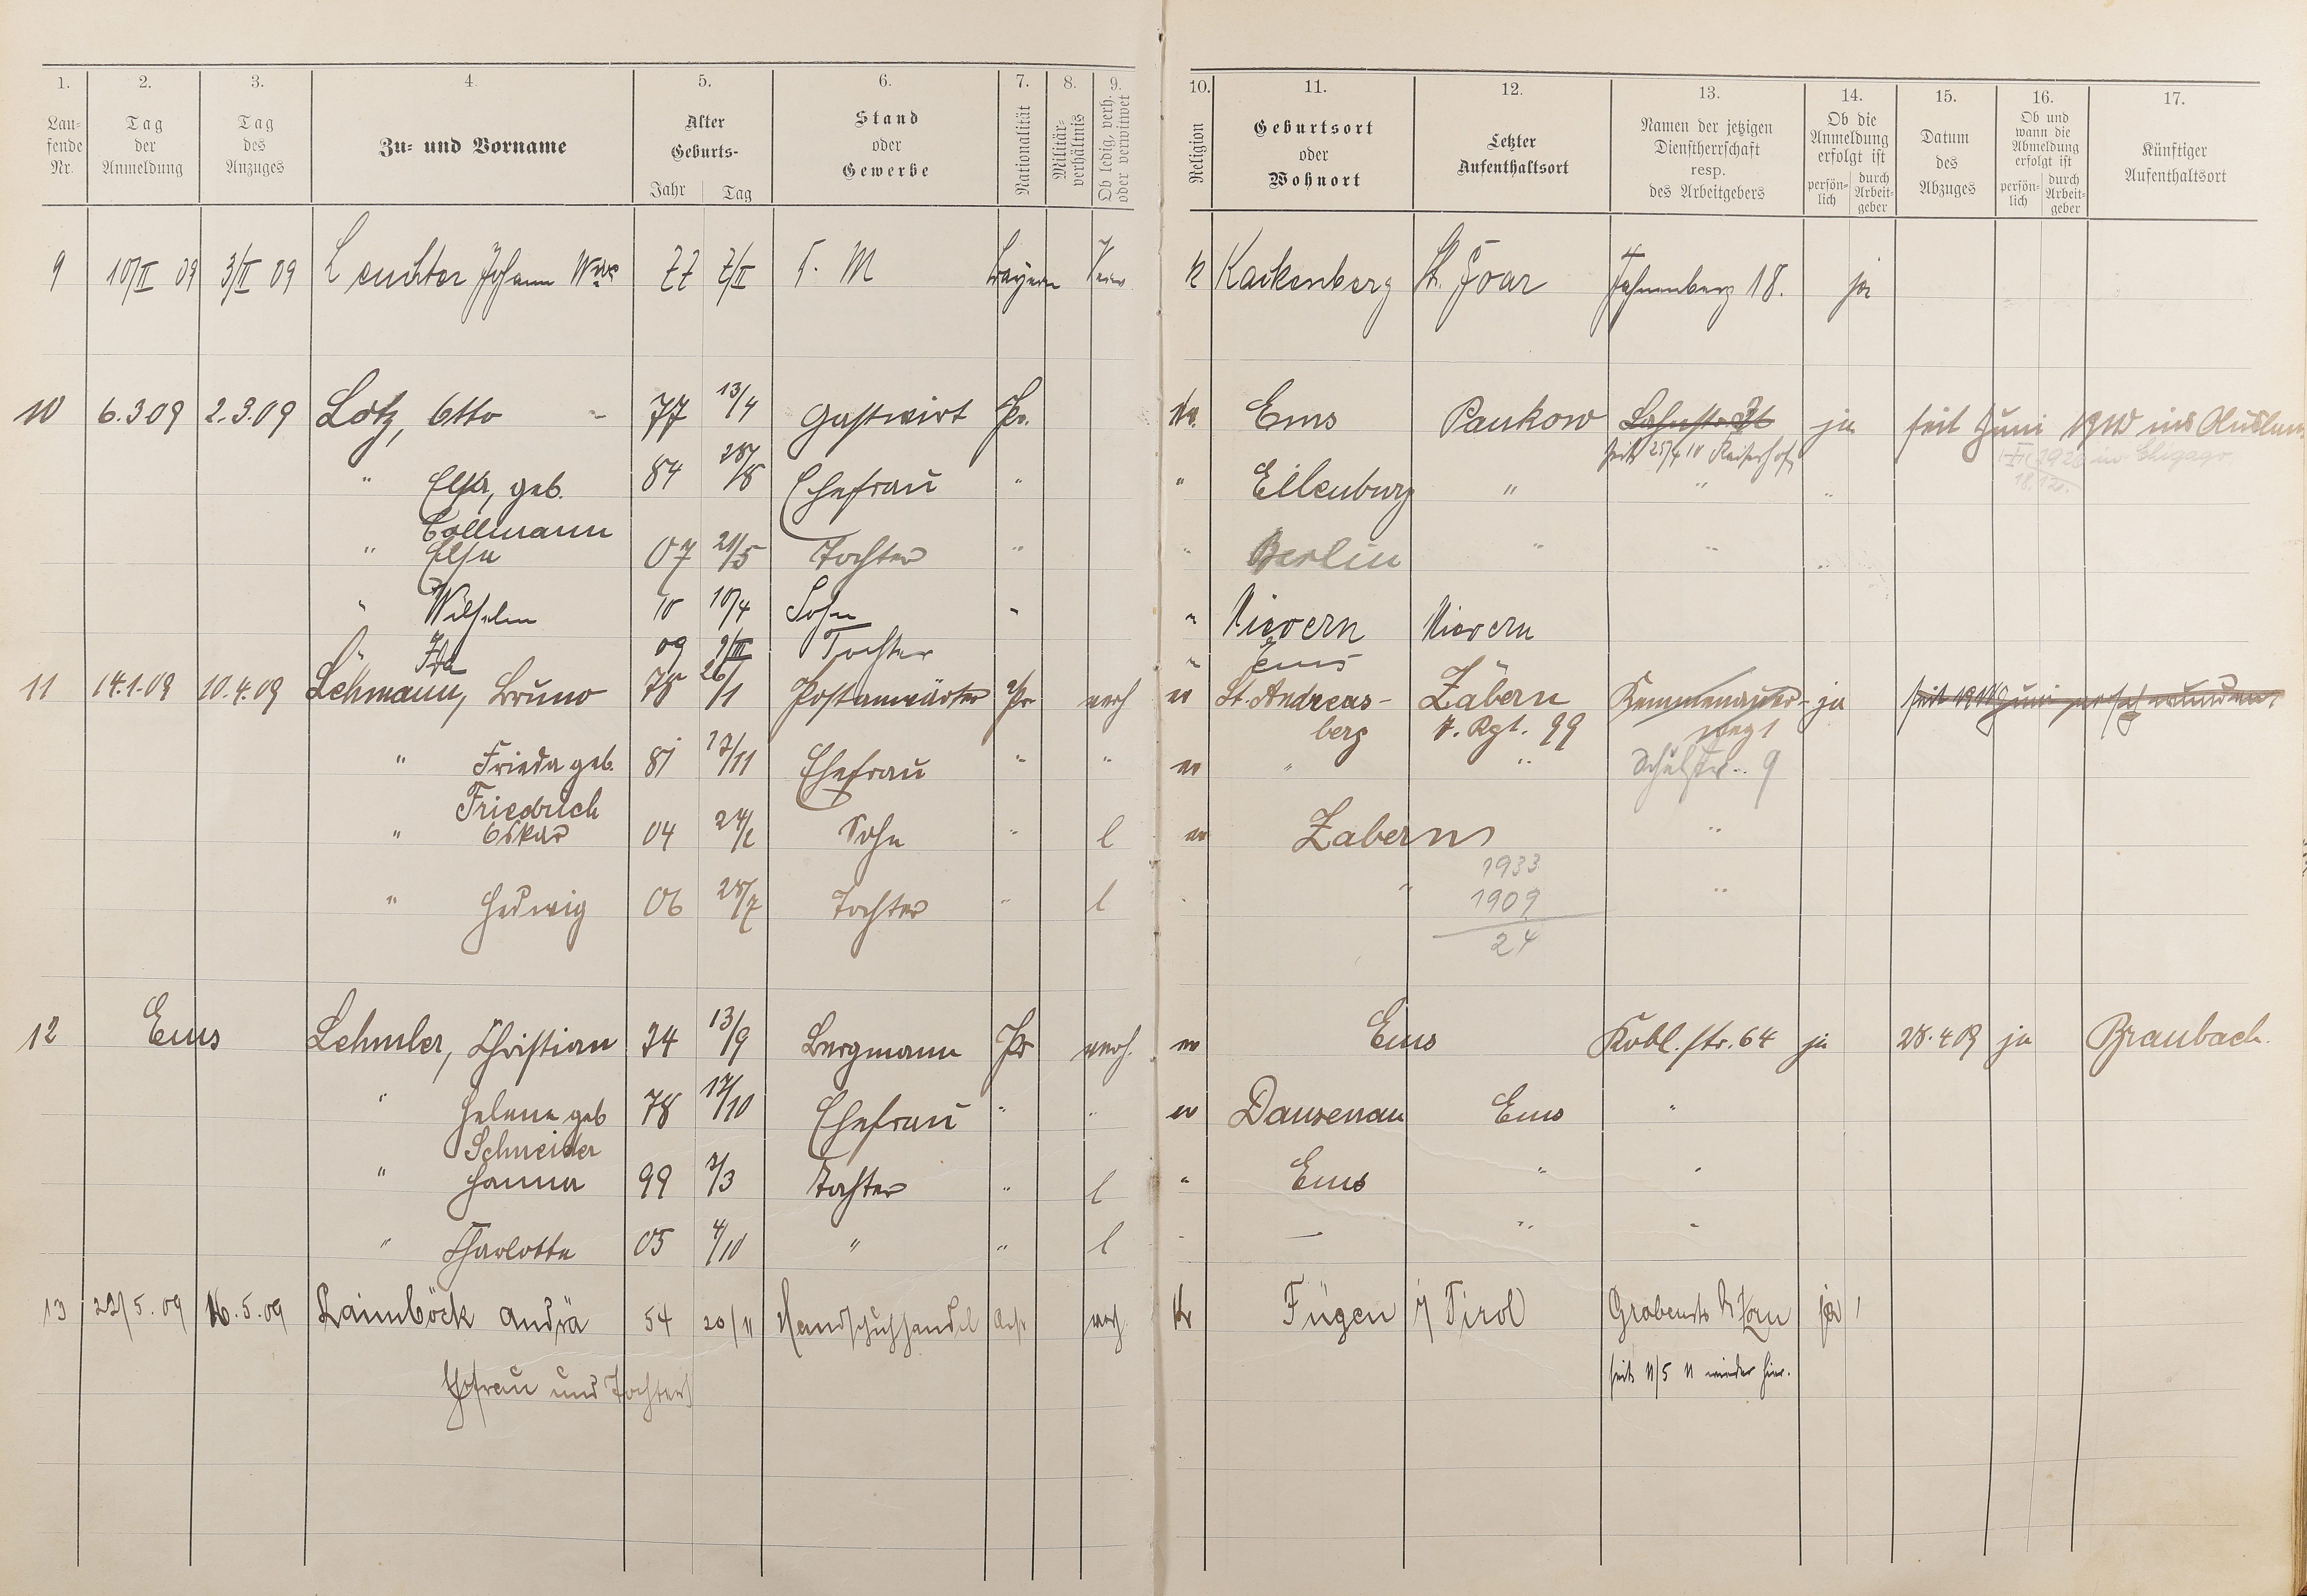 1. 2. 3. 4. 5. 6. 7. 8. 9. 10. 11. 12. 13. 14. 15. 16. 17.
Lau-
fende
Nr.
Tag
der
Anmeldung
Tag
des
Anzuges
Zu- und Vorname
Alter
Geburts-
Jahr Tag
Stand
oder
Gewerbe
Nationalität
Militär-
verhältnis
Ob ledig, verh.
oder verwitwet
Religion
Geburtsort
oder
Wohnort
Letzter
Aufenthaltsort
Namen der jetzigen
Dienstherrschaft
resp.
des Arbeitgebers
Ob die
Anmeldung
erfolgt ist
persön-
lich
durch
Arbeit-
geber
Datum
des
Abzuges
Ob und
wann die
Abmeldung
erfolgt ist
persön-
lich
durch
Arbeit-
geber
Künftiger
Aufenthaltsort
9 10/II 09 3/II 09 Leuchter Johann Wwe 77 7/II T. M Bayern k Kackenberg St. Goar 18. ja
10 6.3.09 2.3.09 Lotz, Otto 77 13/4 Gastwirt Pr. Ems Pankow Lahnstr. ja seit Juni 1910 ins Ausland
seit 25/4 10 Kaiserhof 1920 in Chigago
" Elsa, geb. 84 Ehefrau " " Eilenburg " " "
18.12.
Collmann
" Elsa 07 21/5 Tochter " " Berlin " " "
" Wilhelm 10 10/4 Sohn " " Nievern Nievern
" Ida 09 9/III Tochter " Ems
11 14.1.09 10.4.09 Lehmann, Bruno 78 26/1 Postanwärter Pr verh ev St. Andreas- Zabern Kemmenauer- ja seit 1910 Juni verschwunden
berg 7. Rgt. 99 weg 1
" Frieda geb. 81 17/11 Ehefrau " " ev " " Schulstr. 9
Friedrich
" Oskar 04 Sohn " l ev Zabern "
1933
" Hedwig 06 28/7 Tochter " l " " 1909 "
24
12 Ems Lehmler, Christian 74 13/9 Bergmann Pr verh. ev Ems Kobl. str. 64 ja 28.4 09 ja Braubach.
" Helene geb 78 17/10 Ehefrau " " ev Dausenau Ems "
Schneider
" Hanna 99 7/3 Tochter " l " Ems " "
" Charlotte 05 4/10 " " l " — " "
13 22/5.09 16.5.09 Raimböck Andrä 54 20/11 Handschuhhandel verh k Fügen i/ Tirol Grabenstr ja
seit 11/5 11 wieder hier.
Ehefrau und Tochter